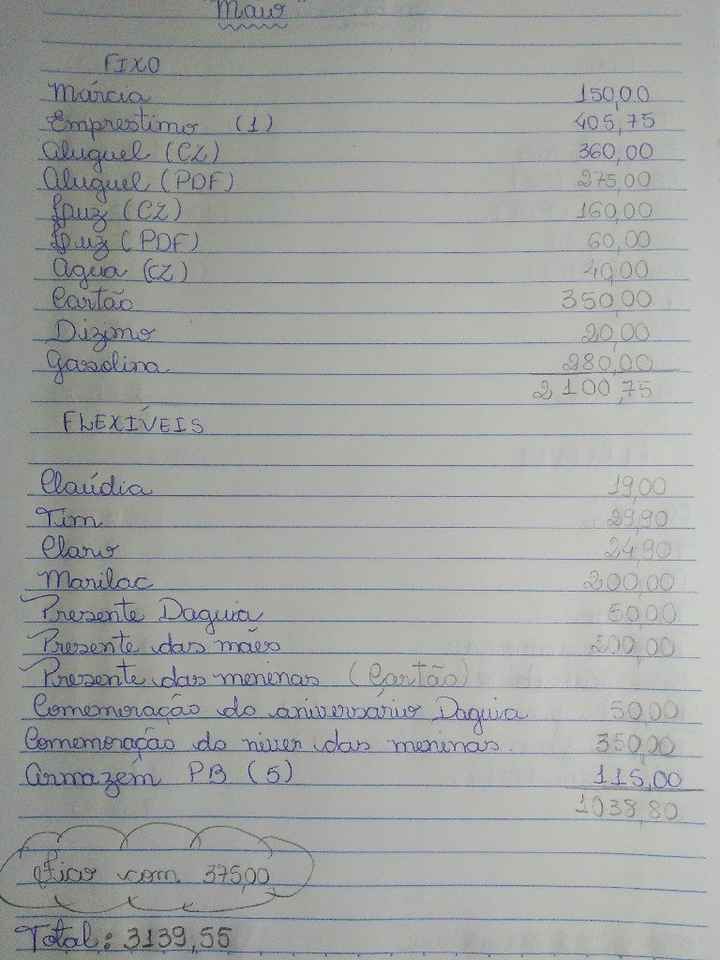 "Maio"
FIXO
Márcia 150,00
Emprestimo (1) 405,75
Aluguel (CZ) 360,00
Aluguel (PDF) 275,00
Luz (CZ) 160,00
Luz (PDF) 60,00
Agua (CZ) 40,00
Cartão 350,00
Dizimo 20,00
Gasolina 280,00
2100,75
FLEXÍVEIS
Claúdia 19,00
Tim 29,90
Claro 24,90
Marilac 200,00
Presente Daguia 50,00
Presente das mães 200,00
Presente das meninas (Cartão)
Comemoração do aniversário Daguia 50,00
Comemoração do niver das meninas. 350,00
Armazém PB (5) 115,00
1038,80
Ficar com 375,00
Total: 3139,55